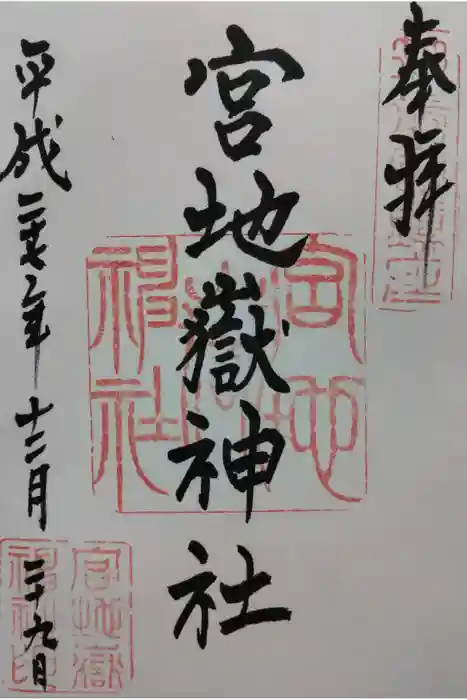 奉拝
宮地嶽神社
宮地嶽神社
平成二十七年十二月二十九日
宮地嶽
神社印